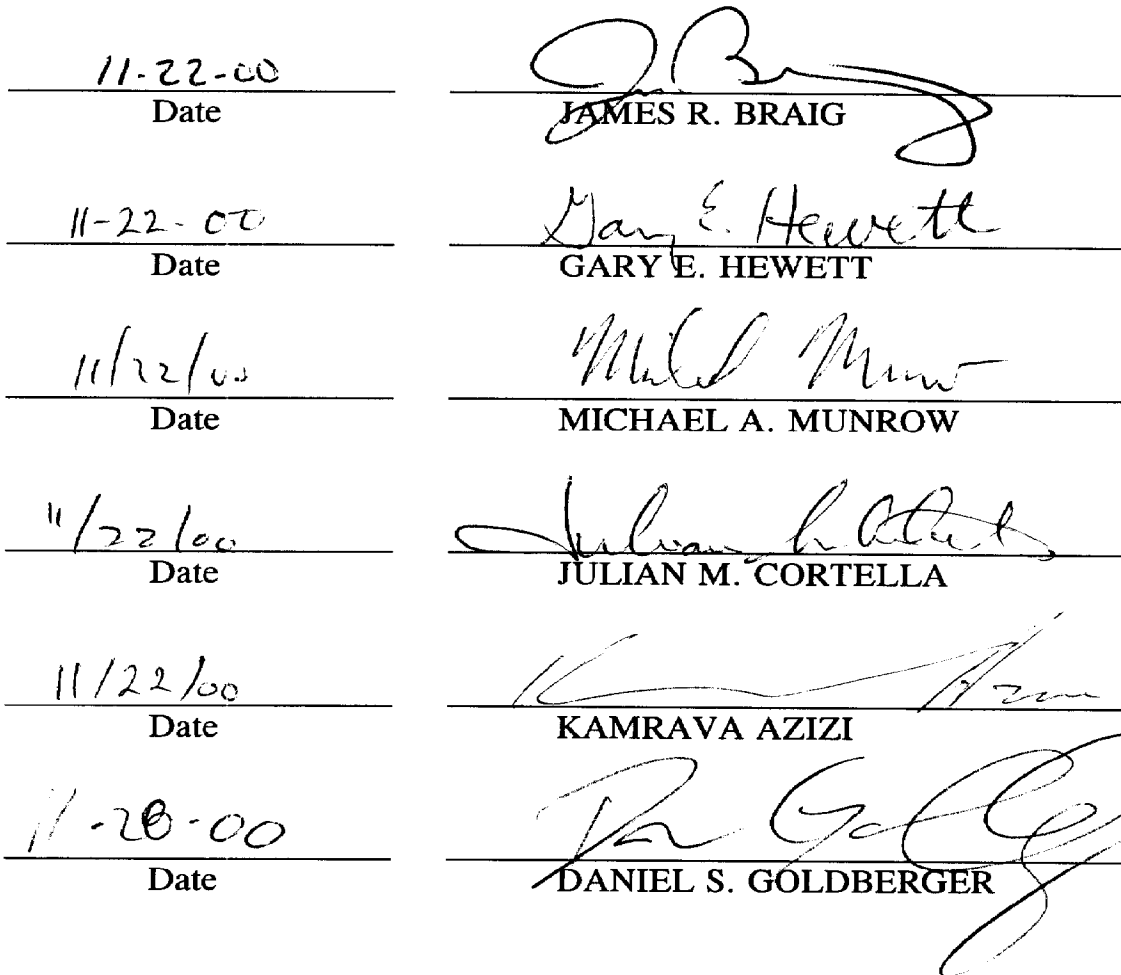 11-22-00 J Braig
Date JAMES R. BRAIG
11-22-00 Gary E. Hewett
Date GARY E. HEWETT
11/22/00 Michael Munrow
Date MICHAEL A. MUNROW
11/22/00 Julian
Date JULIAN M. CORTELLA
11/22/00
Date KAMRAVA AZIZI
11-28-00 Dan
Date DANIEL S. GOLDBERGER